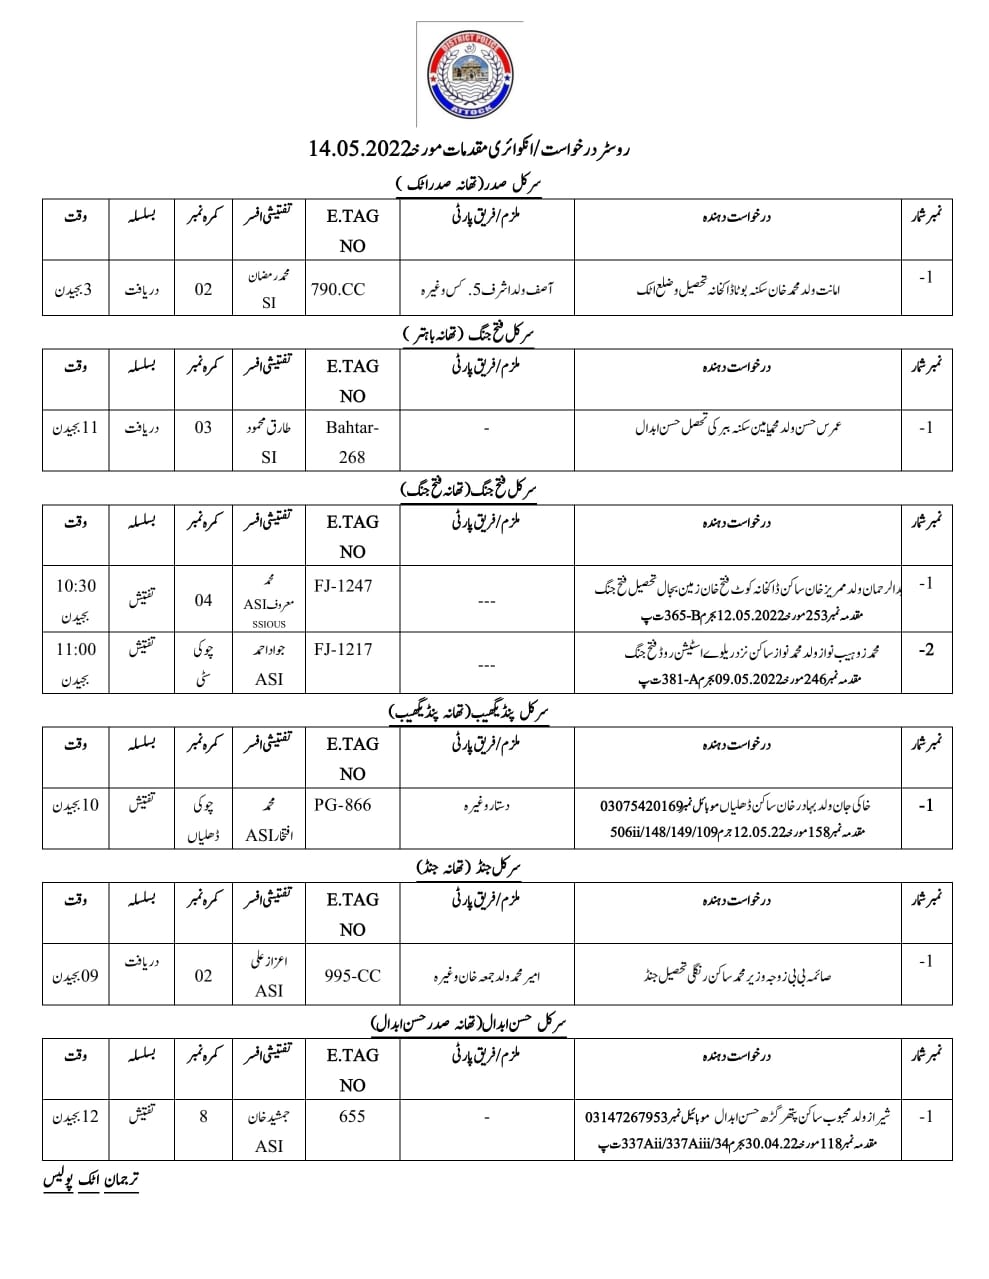 DISTRICT POLICE
ATTOCK
روسٹر درخواست/انکوائری مقدمات مورخہ 14.05.2022
سرکل صدر(تھانہ صدراٹک )
نمبر شمار درخواست دہندہ ملزم/فریق پارٹی E.TAG NO تفتیشی افسر کمرہ نمبر بسلسلہ وقت
1- امانت ولد محمد خان سکنہ بوٹا ڈاکخانہ تحصیل و ضلع اٹک آصف ولد اشرف 5. کس وغیرہ 790.CC محمد رمضان SI 02 دریافت 3بجےدن
سرکل فتح جنگ (تھانہ باہتر )
نمبر شمار درخواست دہندہ ملزم/فریق پارٹی E.TAG NO تفتیشی افسر کمرہ نمبر بسلسلہ وقت
1- عمرس حسن ولد محمد یامین سکنہ ببرکی تحصل حسن ابدال - Bahtar-268 طارق محمود SI 03 دریافت 11بجےدن
سرکل فتح جنگ(تھانہ فتح جنگ)
نمبر شمار درخواست دہندہ ملزم/فریق پارٹی E.TAG NO تفتیشی افسر کمرہ نمبر بسلسلہ وقت
1- بدالرحمان ولد ممریز خان ساکن ڈاکخانہ کوٹ فتح خان زمین بجال تحصیل فتح جنگ
مقدمہ نمبر253مورخہ12.05.2022بجرم365-Bت پ --- FJ-1247 محمد معروفASI SSIOUS 04 تفتیش 10:30 بجےدن
2- محمد زوہیب نواز ولد محمد نواز ساکن نزد ریلوے اسٹیشن روڈ فتح جنگ
مقدمہ نمبر246مورخہ09.05.2022بجرم381-Aت پ --- FJ-1217 جواد احمد ASI چوکی سٹی تفتیش 11:00 بجےدن
سرکل پنڈیگھیب(تھانہ پنڈیگھیب)
نمبر شمار درخواست دہندہ ملزم/فریق پارٹی E.TAG NO تفتیشی افسر کمرہ نمبر بسلسلہ وقت
1- خاکی جان ولد بہادر خان ساکن ڈھلیاں موبائل نمبر03075420169
مقدمہ نمبر158مورخہ12.05.22 جرم506ii/148/149/109 دستار وغیرہ PG-866 محمد افتخارASI چوکی ڈھلیاں تفتیش 10بجےدن
سرکل جنڈ (تھانہ جنڈ)
نمبر شمار درخواست دہندہ ملزم/فریق پارٹی E.TAG NO تفتیشی افسر کمرہ نمبر بسلسلہ وقت
1- صائمہ بی بی زوجہ وزیر محمد ساکن رنگلی تحصیل جنڈ امیر محمد ولد جمعہ خان وغیرہ 995-CC اعزاز علی ASI 02 دریافت 09بجےدن
سرکل حسن ابدال(تھانہ صدر حسن ابدال)
نمبر شمار درخواست دہندہ ملزم/فریق پارٹی E.TAG NO تفتیشی افسر کمرہ نمبر بسلسلہ وقت
1- شیراز ولد محبوب ساکن پتھر گڑھ حسن ابدال موبائیل نمبر03147267953
مقدمہ نمبر118مورخہ30.04.22بجرم337Aii/337Aiii/34ت پ - 655 جمشید خان ASI 8 تفتیش 12بجےدن
ترجمان اٹک پولیس